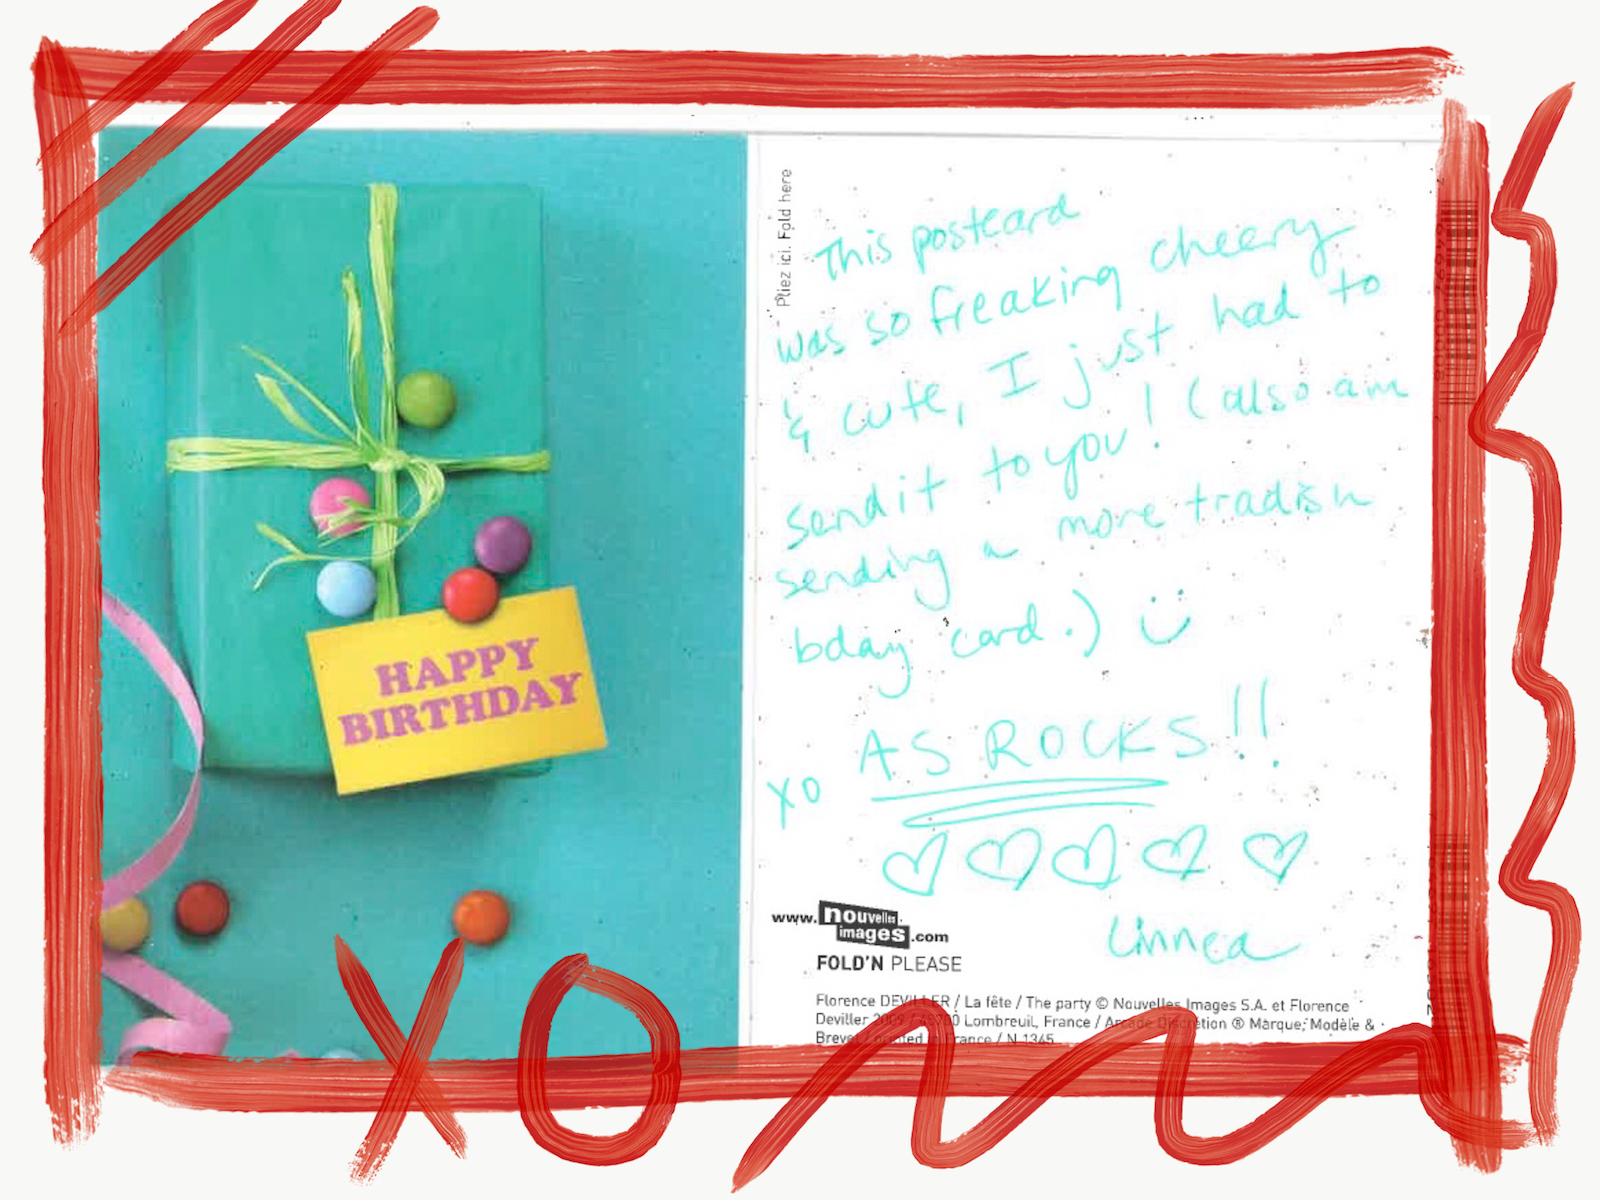 HAPPY
BIRTHDAY
Pliez ici. Fold here
This postcard
was so freaking cheery
& cute, I just had to
send it to you! (also am
sending a more tradish
bday card.) :)
XO AS ROCKS!!
♡ ♡ ♡ ♡ ♡
Linnea
www.nouvelles
images.com
FOLD'N PLEASE
Florence DEVILLER / La fête / The party © Nouvelles Images S.A. et Florence
Deviller 2009 / 45700 Lombreuil, France / Arcade Discrétion ® Marque, Modèle &
Brevet / printed in France / N 1345
XO